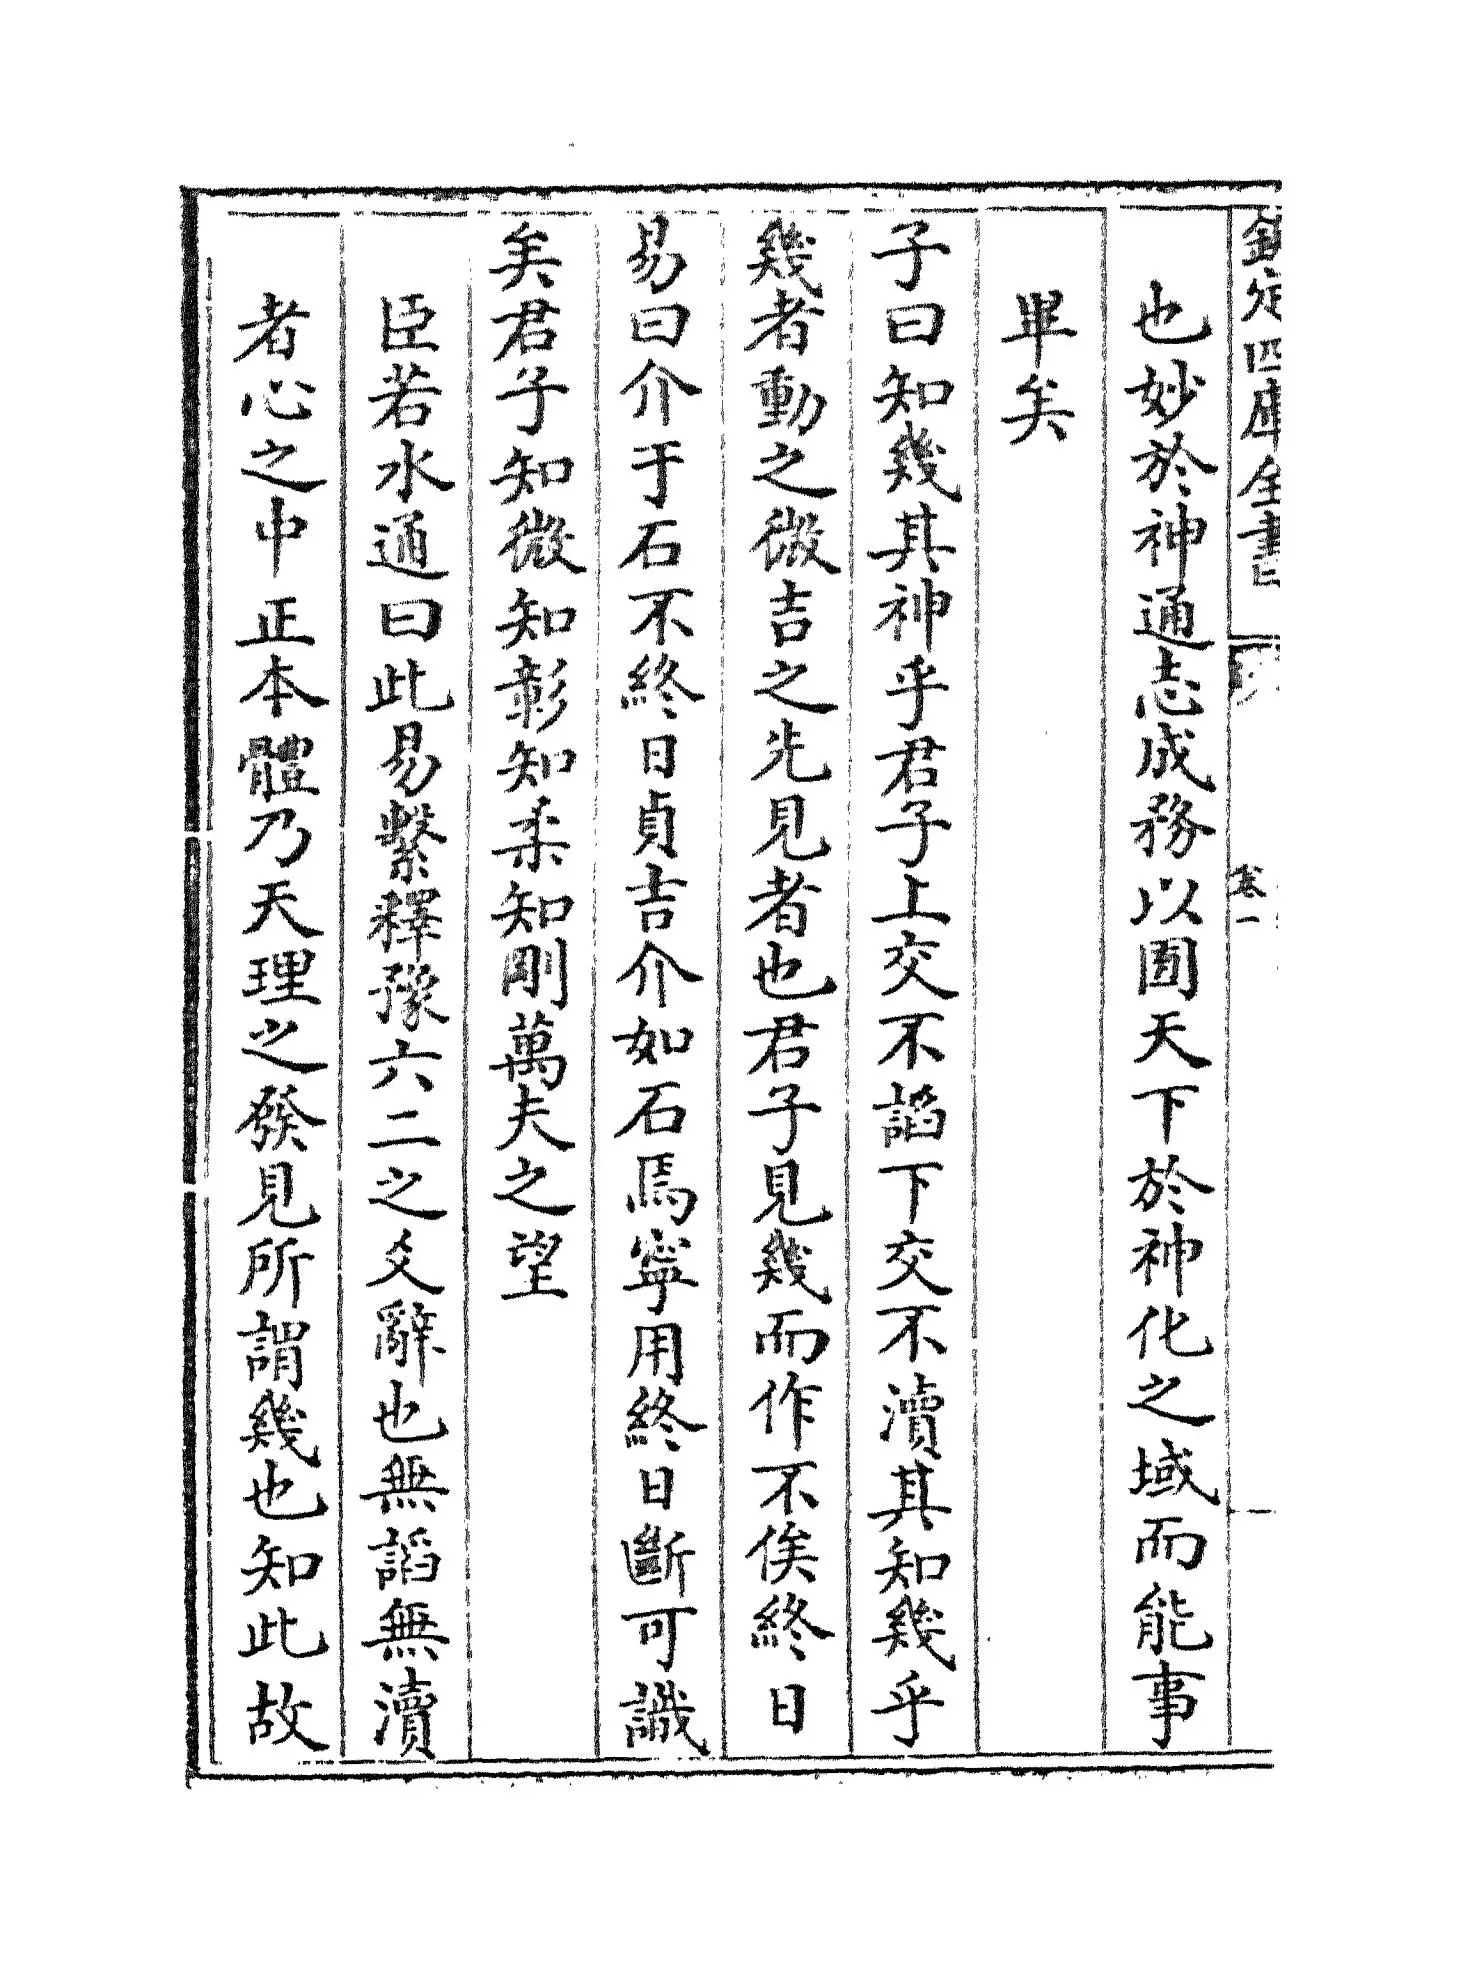 欽定四庫全書
卷一
也妙於神通志成務以囿天下於神化之域而能事
畢矣
子曰知幾其神乎君子上交不諂下交不瀆其知幾乎
幾者動之微吉之先見者也君子見幾而作不俟終日
易曰介于石不終日貞吉介如石焉寧用終日斷可識
矣君子知微知彰知柔知剛萬夫之望
臣若水通曰此易繫釋豫六二之爻辭也無諂無瀆
者心之中正本體乃天理之發見所謂幾也知此故